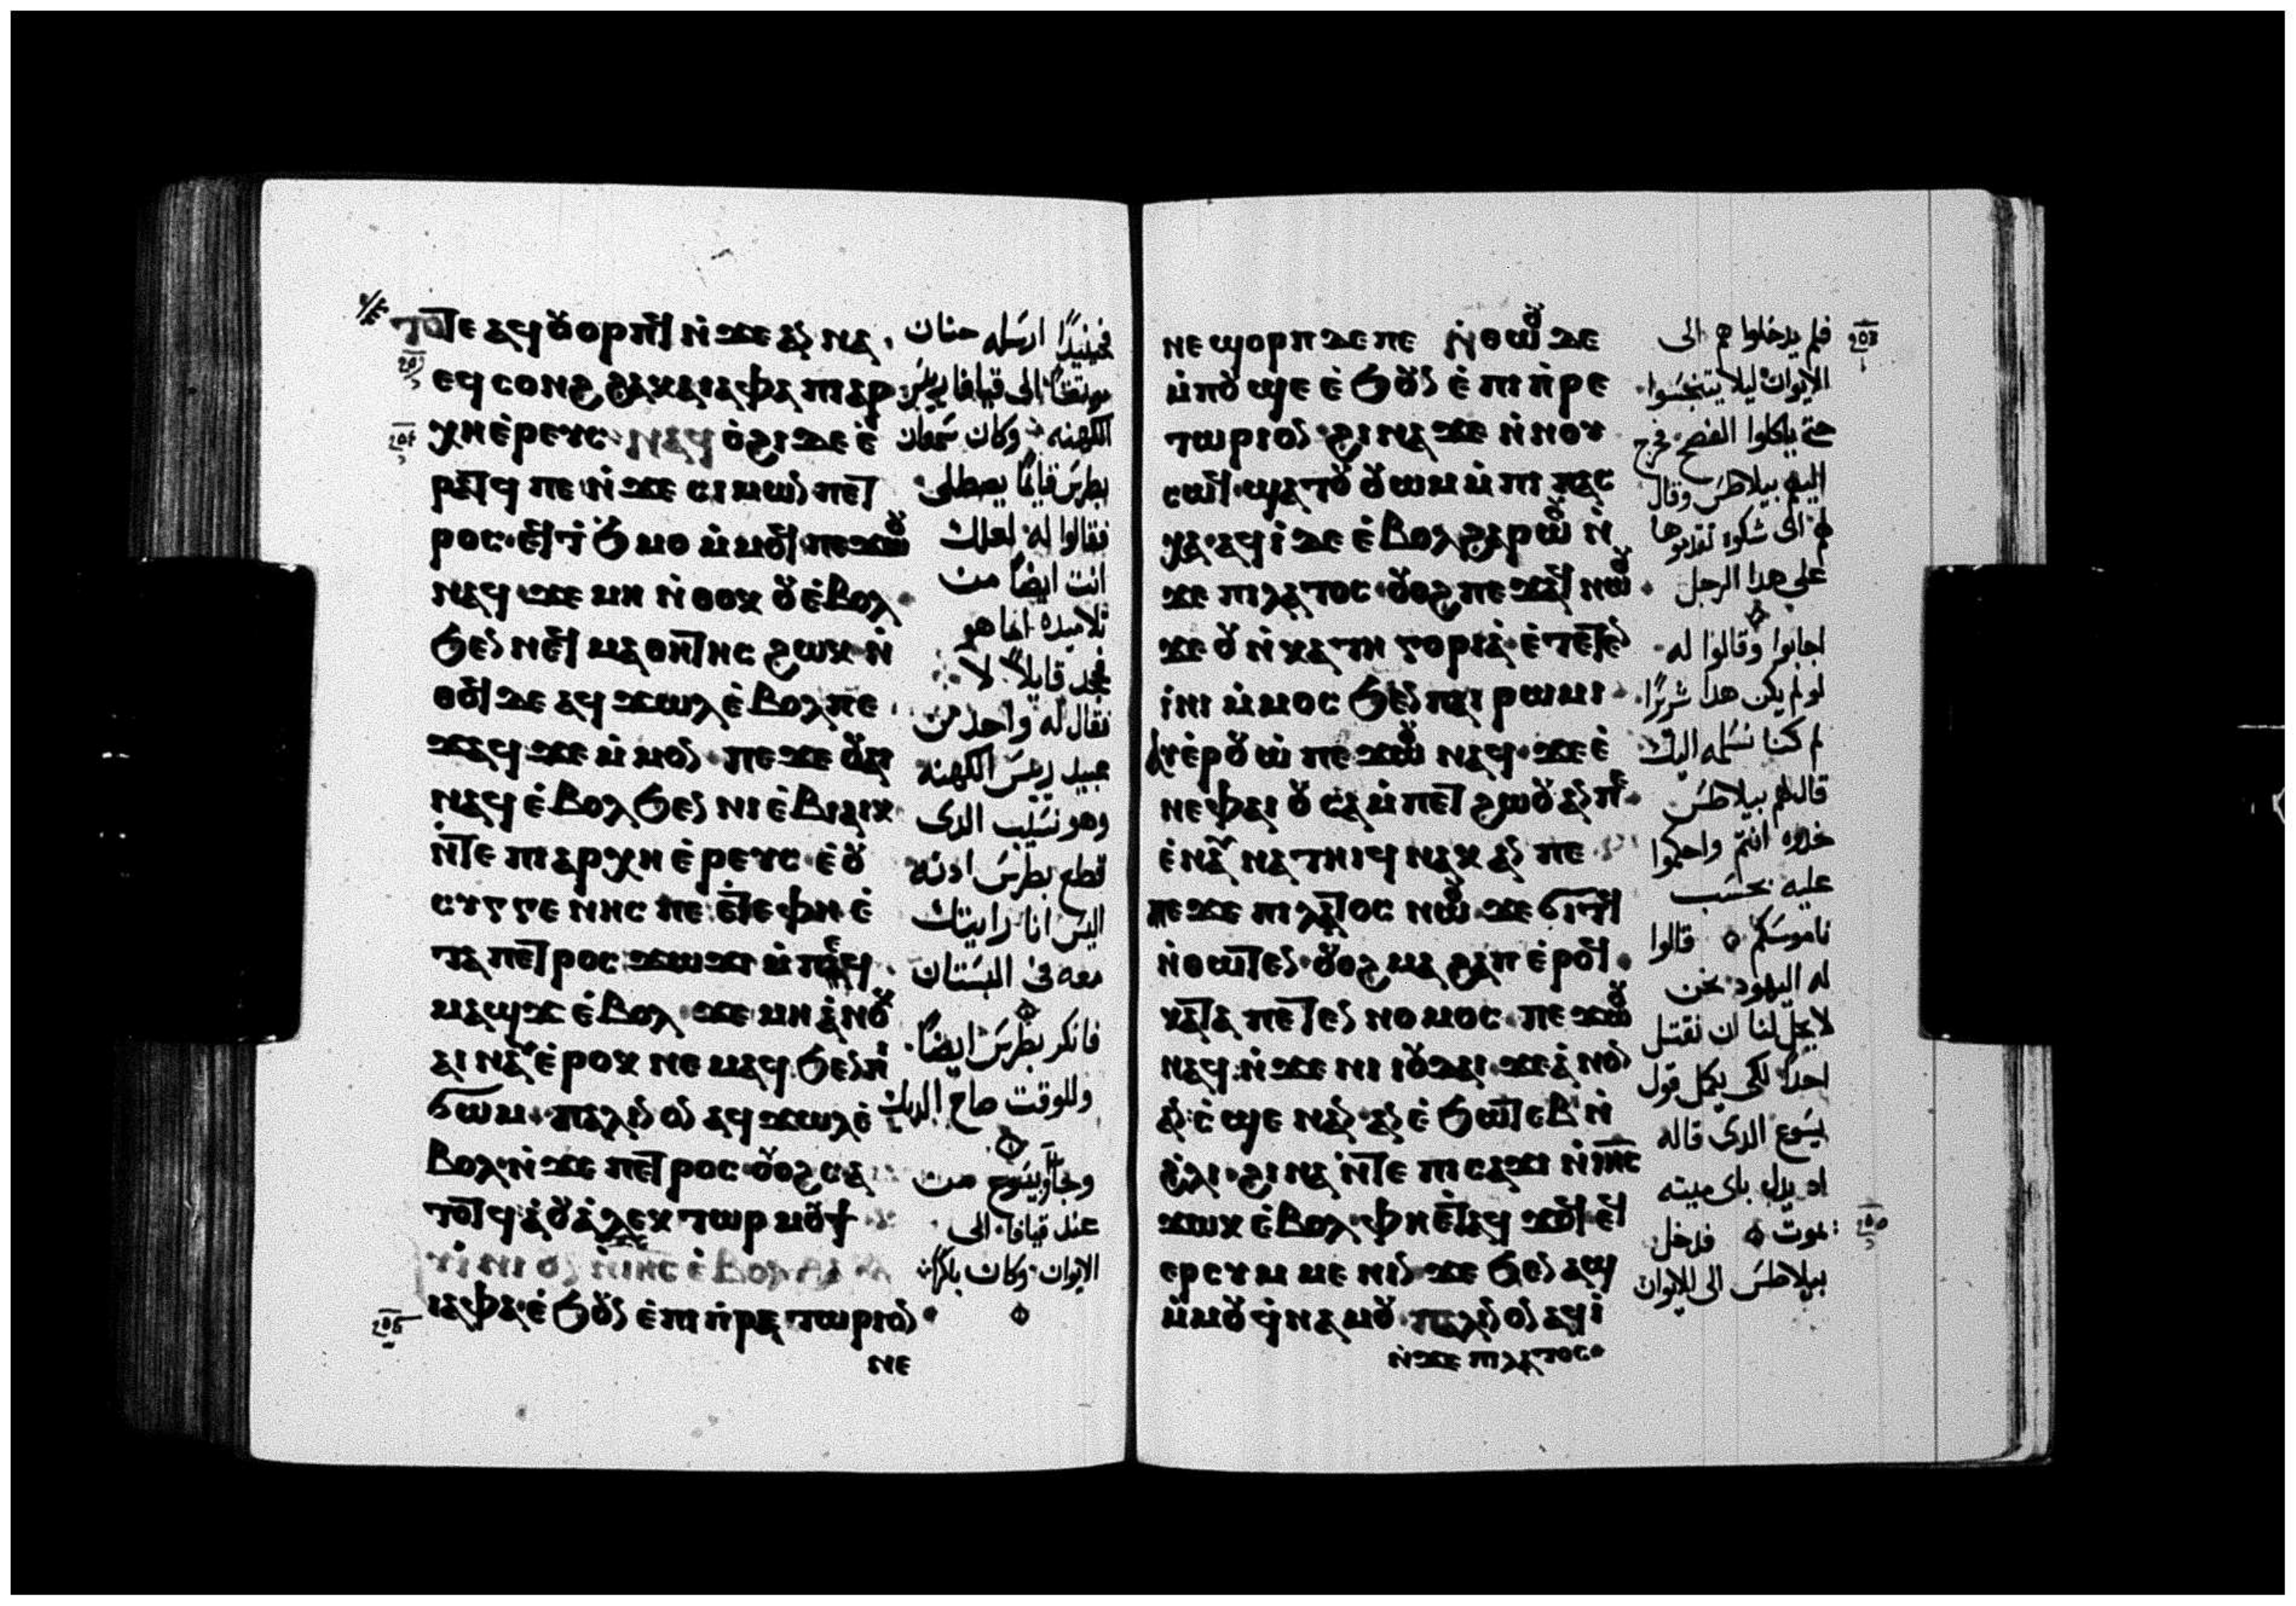 ⲧⲟⲧⲉ ⲁϥⲟⲩⲟⲣⲡϥ ⲛ̇ϫⲉ ⲁⲛⲛⲁ
ⲉϥⲥⲟⲛϩ ϩⲁ ⲕⲁⲓⲁⲫⲁ ⲡⲓⲁⲣ
ⲭⲏⲉ̇ⲣⲉⲩⲥ ⲛⲁϥ ⲟ̇ϩⲓ ⲇⲉ ⲉ̇
ⲣⲁⲧϥ ⲡⲉ ⲛ̇ϫⲉ ⲥⲓⲙⲱⲛ ⲡⲉⲧ
ⲣⲟⲥ ⲉϥϯ ϧⲙⲟ ⲙ̇ⲙⲟϥ ⲡⲉϫⲱⲟⲩ
ⲛⲁϥ ϫⲉ ⲙⲏ ⲛ̇ⲑⲟⲕ ⲟⲩ ⲉ̇ⲃⲟⲗ
ϧⲉⲛ ⲛⲉϥ ⲙⲁⲑⲏⲧⲏⲥ ϩⲱⲕ ⲛ̇
ⲑⲟϥ ⲇⲉ ⲁϥϫⲱⲗ ⲉ̇ⲃⲟⲗ ⲡⲉ
ϫⲁϥ ϫⲉ ⲙ̇ⲙⲟⲛ ⲡⲉϫⲉ ⲟⲩⲁⲓ
ⲛⲁϥ ⲉ̇ⲃⲟⲗ ϧⲉⲛ ⲛⲓ ⲉ̇ⲃⲓⲁⲓⲕ
ⲛ̇ⲧⲉ ⲡⲓⲁⲣⲭⲏⲉ̇ⲣⲉⲩⲥ ⲉ̇ⲟⲩ
ⲥⲩⲅⲅⲉⲛⲏⲥ ⲡⲉ ⲛ̇ⲧⲉ ⲫⲏ ⲉ̇
ⲧⲁ ⲡⲉⲧⲣⲟⲥ ϫⲱϫⲓ ⲙ̇ⲡⲉϥ
ⲙⲁϣϫ ⲉ̇ⲃⲟⲗ ϫⲉ ⲙⲏ ⲁ̇ⲛⲟⲕ
ⲁⲓⲛⲁⲩ ⲉ̇ⲣⲟⲕ ⲛⲉⲙⲁϥ ϧⲉⲛ ⲡⲓ
ϭⲱⲙ ⲡⲁⲗⲓⲛ ⲟⲛ ⲁϥϫⲱⲗ ⲉ̇
ⲃⲟⲗ ⲛ̇ϫⲉ ⲡⲉⲧⲣⲟⲥ ⲟⲩⲟϩ ⲥⲁ
ⲧⲟⲧϥ ⲁ̇ⲟⲩⲁ̇ⲗⲉⲕⲧⲱⲣ ⲙⲟⲩϯ
ⲁⲫⲁ ⲉ̇ϧⲟⲩⲛ ⲉ̇ⲡⲓⲡ̇ⲣⲉⲧⲱⲣⲓⲟⲛ
ⲛⲉ
فحينيدًا ارسله حنان
موتقًا الى قيافا رييس
الكهنه وكان سمعان
بطرس قايمًا يصطلى
فقالوا له لعلك
انت ايضًا من
تلاميده اما هو
فجحد قايلاً لا
فقال له واحد من
عبيد رييس الكهنه
وهو نسيب الدى
قطع بطرس ادنه
اليس انا رايتك
معه فى البستان
فانكر بطرس ايضًا
وللوقت صاح الديك
وجآو بيسوع من
عند قيافا الى
الايوان وكان باكرًا
ⲛⲉ ϣⲟⲣⲡ ⲇⲉ ⲡⲉ ⲛ̇ⲑⲱⲟⲩ ⲇⲉ
ⲙ̇ⲡⲟⲩϣⲉ ⲉ̇ϧⲟⲩⲛ ⲉ̇ⲡⲓⲡ̇ⲣⲉ
ⲧⲱⲣⲓⲟⲛ ϩⲓⲛⲁ ϫⲉ ⲛ̇ⲛⲟⲩ
ⲥⲱϥ ϣⲁⲧⲟⲩ ⲟⲩⲱⲙ ⲙ̇ⲡⲓ ⲡⲁⲥ
ⲭⲁ ⲁϥⲓ̇ ⲇⲉ ⲉ̇ⲃⲟⲗ ϩⲁⲣⲱⲟⲩ ⲛ̇
ϫⲉ ⲡⲓⲗⲁⲧⲟⲥ ⲟⲩⲟϩ ⲡⲉϫⲁϥ ⲛⲱⲟⲩ
ϫⲉ ⲟⲩ ⲛ̇ⲕⲁⲧⲏⲅⲟⲣⲓⲁ̇ ⲉ̇ⲧⲉⲧⲉⲛ
ⲓ̇ⲛⲓ ⲙ̇ⲙⲟⲥ ϧⲉⲛ ⲡⲁⲓ ⲣⲱⲙⲓ
ⲁⲩⲉ̇ⲣⲟⲩⲱ̇ ⲡⲉϫⲱⲟⲩ ⲛⲁϥ ϫⲉ ⲉ̇
ⲛⲉ ⲫⲁⲓ ⲟⲩ ⲥⲁⲙ̇ⲡⲉⲧϩⲱⲟⲩ ⲁⲛ ⲡⲉ
ⲉ̇ⲛⲁⲛ ⲛⲁⲧⲏⲓϥ ⲛⲁⲕ ⲁⲛ ⲡⲉ
ⲡⲉϫⲉ ⲡⲓⲗⲁⲧⲟⲥ ⲛⲱⲟⲩ ϫⲉ ϭⲓⲧϥ
ⲛ̇ⲑⲱⲧⲉⲛ ⲟⲩⲟϩ ⲙⲁϩⲁⲡ ⲉ̇ⲣⲟϥ
ⲕⲁⲧⲁ ⲡⲉⲧⲉⲛ ⲛⲟⲙⲟⲥ ⲡⲉϫⲱⲟⲩ
ⲛⲁϥ ⲛ̇ϫⲉ ⲛⲓ ⲓⲟⲩⲇⲁⲓ ϫⲉ ⲁ̇ⲛⲟⲛ
ⲥ̇ϣⲉ ⲛⲁⲛ ⲁⲛ ⲉ̇ϧⲱⲧⲉⲃ ⲛ̇
ϩ̇ⲗⲓ ϩⲓⲛⲁ ⲛ̇ⲧⲉ ⲡⲓⲥⲁϫⲓ ⲛ̇ⲓⲏⲥ
ϫⲱⲕ ⲉ̇ⲃⲟⲗ ⲫⲏ ⲉ̇ⲧⲁϥϫⲟϥ ⲉϥ
ⲉⲣⲥⲩⲙⲙⲉⲛⲓⲛ ϫⲉ ϧⲉⲛ ⲁϣ
ⲙ̇ⲙⲟⲩ ϥ̇ⲛⲁⲙⲟⲩ ⲡⲁⲗⲓⲛ ⲟⲛ ⲁϥⲓ̇
ⲛ̇ϫⲉ ⲡⲓⲗⲁⲧⲟⲥ
فلم يدخلوا هم الى
الايوان ليلا يتنجسوا
حتى ياكلوا الفصح فخرج
اليهم بيلاطس وقال
لهم اى شكوه تقدموها
على هدا الرجل
اجابوا وقالوا له
لو لم يكن هدا شريرًا
لم كنا نسلمه اليك
قال لهم بيلاطس
خدوه انتم واحكموا
عليه بحسب
ناموسكم قالوا
له اليهود نحن
لا يحل لنا ان نقتل
احدًا لكى يكمل قول
يسوع الدى قاله
اد يدل باى ميته
يموت فدخل
بيلاطس الى الايوان